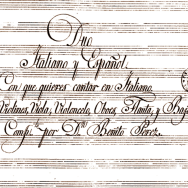 Duo
Italiano y Español.
Con que quieres cantar en Italiano
Violines, Viola, Violoncelo, Oboes, Flauta, y Bajo
Comp.^to por D.^n Benito Perez.